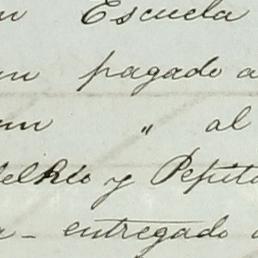 Escuela
pagado a
" al
del Rio y Pepito
entregado